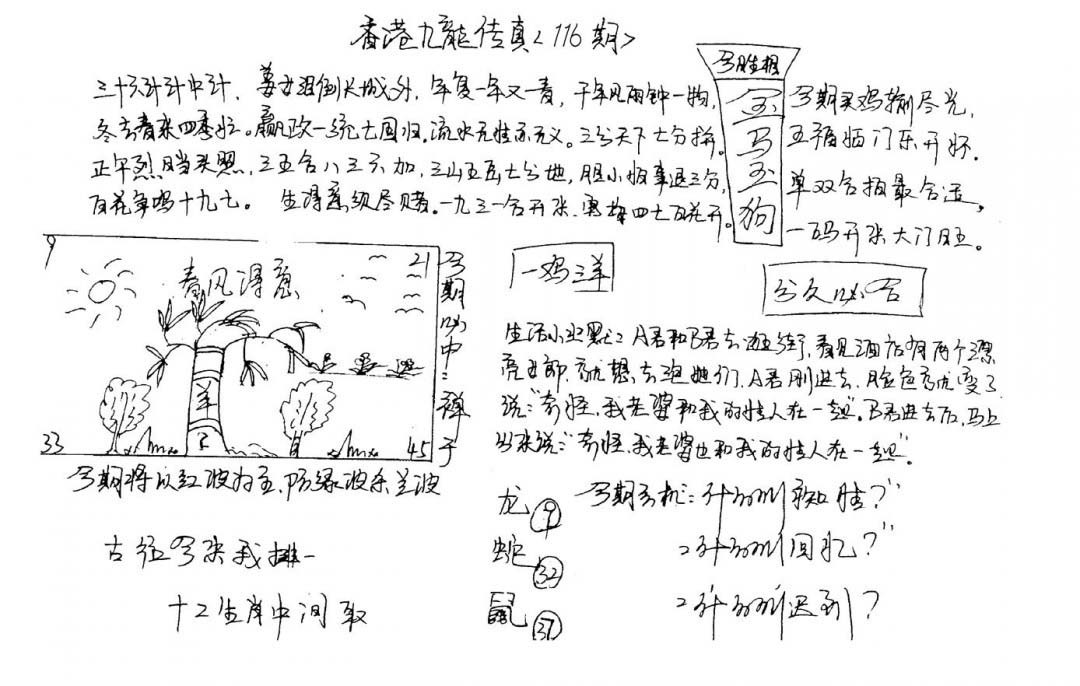 香港九龍传真<116期>
三十六计计中计, 姜女泪倒长城外, 年复一年又一春, 千年风雨钟一物,
冬去春来四季红。赢政一统七国归。流水无性亦无义。三分天下七分拼。
正午烈日当头照, 三五合八三六加, 三山五岳七分地, 胆小怕事退三分,
百花争鸣十九七。 生得意须尽赌。一九三一合开张, 寒梅四七百花开。
今期买鸡输尽光,
五福临门乐开怀.
单双合报最合适,
一码开张大门旺。
金
马
玉
狗
一鸡三羊
分久必合
9
21
春风得意
羊
33
45
今期必中:禅子
今期将以红波为主,防绿波杀兰波
古径今来我排一
十二生肖中间取
生活小业默: A君和B君去逛街,看见酒店有两个漂
亮女郎,就想去泡她们,A君刚进去,脸色就变了
说:"奇怪,我老婆和我的情人在一起"。B君进去后,马上
出来说:"奇怪,我老婆也和我的情人在一起"。
龙 ⑨
蛇 ㉜
鼠 ㊲
今期玄机: